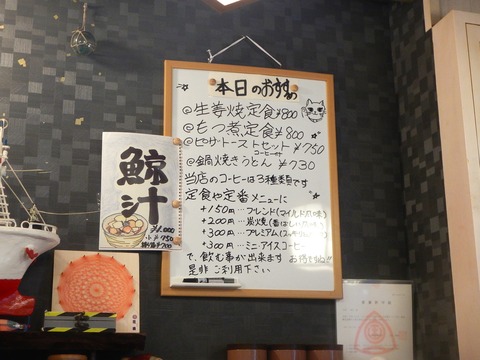 本日のおすすめ
@生姜焼定食 ¥800
@もつ煮定食 ¥800
@ピザトーストセット ¥750
コーヒー付
@鍋焼きうどん ¥730
当店のコーヒーは3種類です
定食や定番メニューに
+150円…ブレンド(マイルド
+200円…炭焼(香ばしい
+300円…プレミアム
+300円…ミニ・アイスコーヒー
で、飲む事が出来ます
是非ご利用下さい
鯨汁